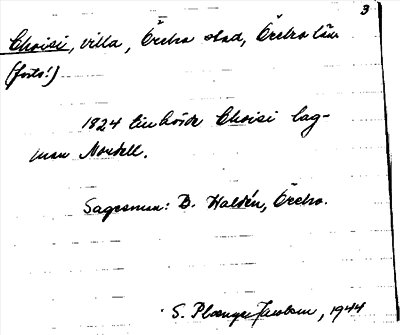 3
Choisi, villa, Örebro stad, Örebro län
(forts!)
1824 tillhörde Choisi lag-
man Nordell.
Sagesman: B. Waldén, Örebro.
S. Plænge Jacobson, 1944